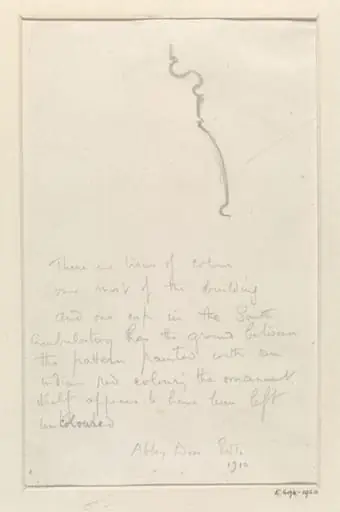 There are traces of colour
over most of the building
and one cap in the South
Ambulatory has the ground between
the pattern painted with an
indian red colour; the ornament
itself appears to have been left
uncoloured
Abbey Dore
1910